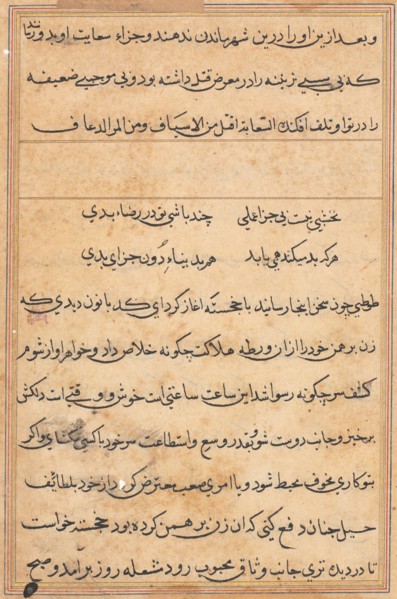 و بعد ازین او را درین شهر ماندن ندهند و جزاء سعایت او بدو رسانند
که بی سببی زنی را در معرض قتل داشته بود و بی موجبی ضعیفه
را در توا و تلف افکنده السعایة اقل من الاسیاف و من المر الذعاف
نخشبی نیست بی جزا عملی چند باشی تو در رضاء بدی
هر که بد میکند همی یابد هم بدنیاء دون جزای بدی
طوطی چون سخن اینجا رسانید با خجسته آغاز کرد ای کدبانو ندیدی که
زن برهمن خود را از ان ورطه هلاکت چگونه خلاص داد و خواهر او از شوم
کشف سر چگونه رسوا شد این ساعت ساعتی است خوش و وقتی است دلکش
برخیز و جانب دوست شو و بقدر وسع و استطاعت سر خود با کسی مگشای و اگر
بتو کاری مخوف محیط شود و یا امری صعب معترض گردد از خود بلطائف
حیل چنان دفع کنی که ان زن برهمن کرده بود خجسته خواست
تا در دیده تری جانب وثاق محبوب رود مشعله روز برامد و صبح